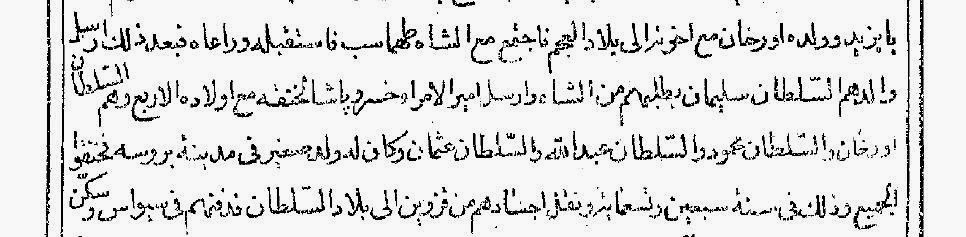 بايزيد وولده اورخان مع اخوته الى بلاد العجم فاجتمع مع الشاه طهماسب فاستقبله وراعاه فبعد ذلك ارسل
والدهم السلطان سليمان يطلبهم من الشاه وارسل امير الامراء خسرو پاشا فخنقه مع اولاده الاربع وهم السلطان
اورخان والسلطان محمود والسلطان عبدالله والسلطان عثمان وكان له ولد صغير فى مدينة بروسه فخنقوا
الجميع وذلك فى سنة سبعين وتسعمايئة ونقل اجسادهم من قزوين الى بلاد السلطان فدفنهم فى سيواس وسكن